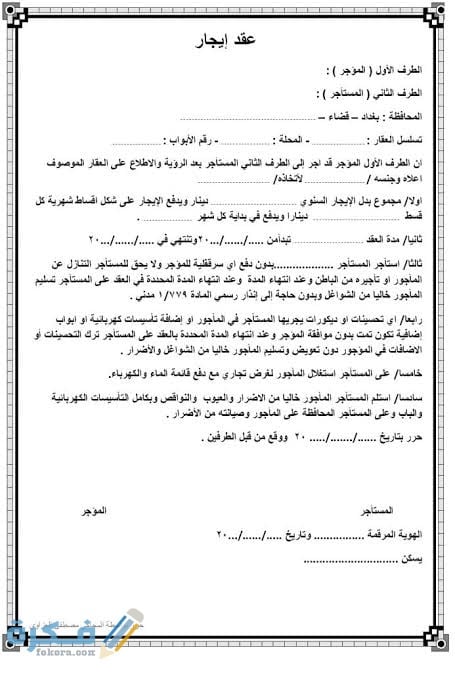 عقد إيجار
الطرف الأول ( المؤجر ) :
الطرف الثاني ( المستأجر ) :
المحافظة : بغداد – قضاء – ..................................
تسلسل العقار : ................ - المحلة : ................ - رقم الأبواب : ................
ان الطرف الأول المؤجر قد اجر إلى الطرف الثاني المستأجر بعد الرؤية والاطلاع على العقار الموصوف
اعلاه وجنسه / ........................ لأتخاذه/ ........................
اولا/ مجموع بدل الإيجار السنوي ........................ دينار ويدفع الإيجار على شكل اقساط شهرية كل
قسط ........................ دينارا ويدفع في بداية كل شهر ................ .
ثانيا/ مدة العقد ................ تبدأمن ...../....../٢٠...وتنتهي في ...../...../...٢٠
ثالثا/ أستأجر المستأجر ..................بدون دفع اي سرقفلية للمؤجر ولا يحق للمستأجر التنازل عن
المأجور او تأجيره من الباطن وعند انتهاء المدة وعند انتهاء المدة المحددة في العقد على المستأجر تسليم
المأجور خاليا من الشواغل وبدون حاجة إلى إنذار رسمي المادة ١/٧٧٩ مدني .
رابعا/ أي تحسينات او ديكورات يجريها المستأجر في المأجور او إضافة تأسيسات كهربائية او ابواب
إضافية تكون تمت بدون موافقة المؤجر وعند انتهاء المدة المحددة بالعقد على المستأجر ترك التحسينات أو
الاضافات في المؤجور دون تعويض وتسليم المأجور خاليا من الشواغل والأضرار .
خامسا/ على المستأجر استغلال المأجور لغرض تجاري مع دفع قائمة الماء والكهرباء.
سادسا/ استلم المستأجر المأجور خاليا من الاضرار والعيوب والنواقص وبكامل التأسيسات الكهربائية
والباب وعلى المستأجر المحافظة على المأجور وصيانته من الأضرار .
حرر بتاريخ ....../......./..... ٢٠ ووقع من قبل الطرفين .
المستأجر المؤجر
الهوية المرقمة ................ وتاريخ ...../...../...٢٠
يسكن ............................
فكرة
fokora.com